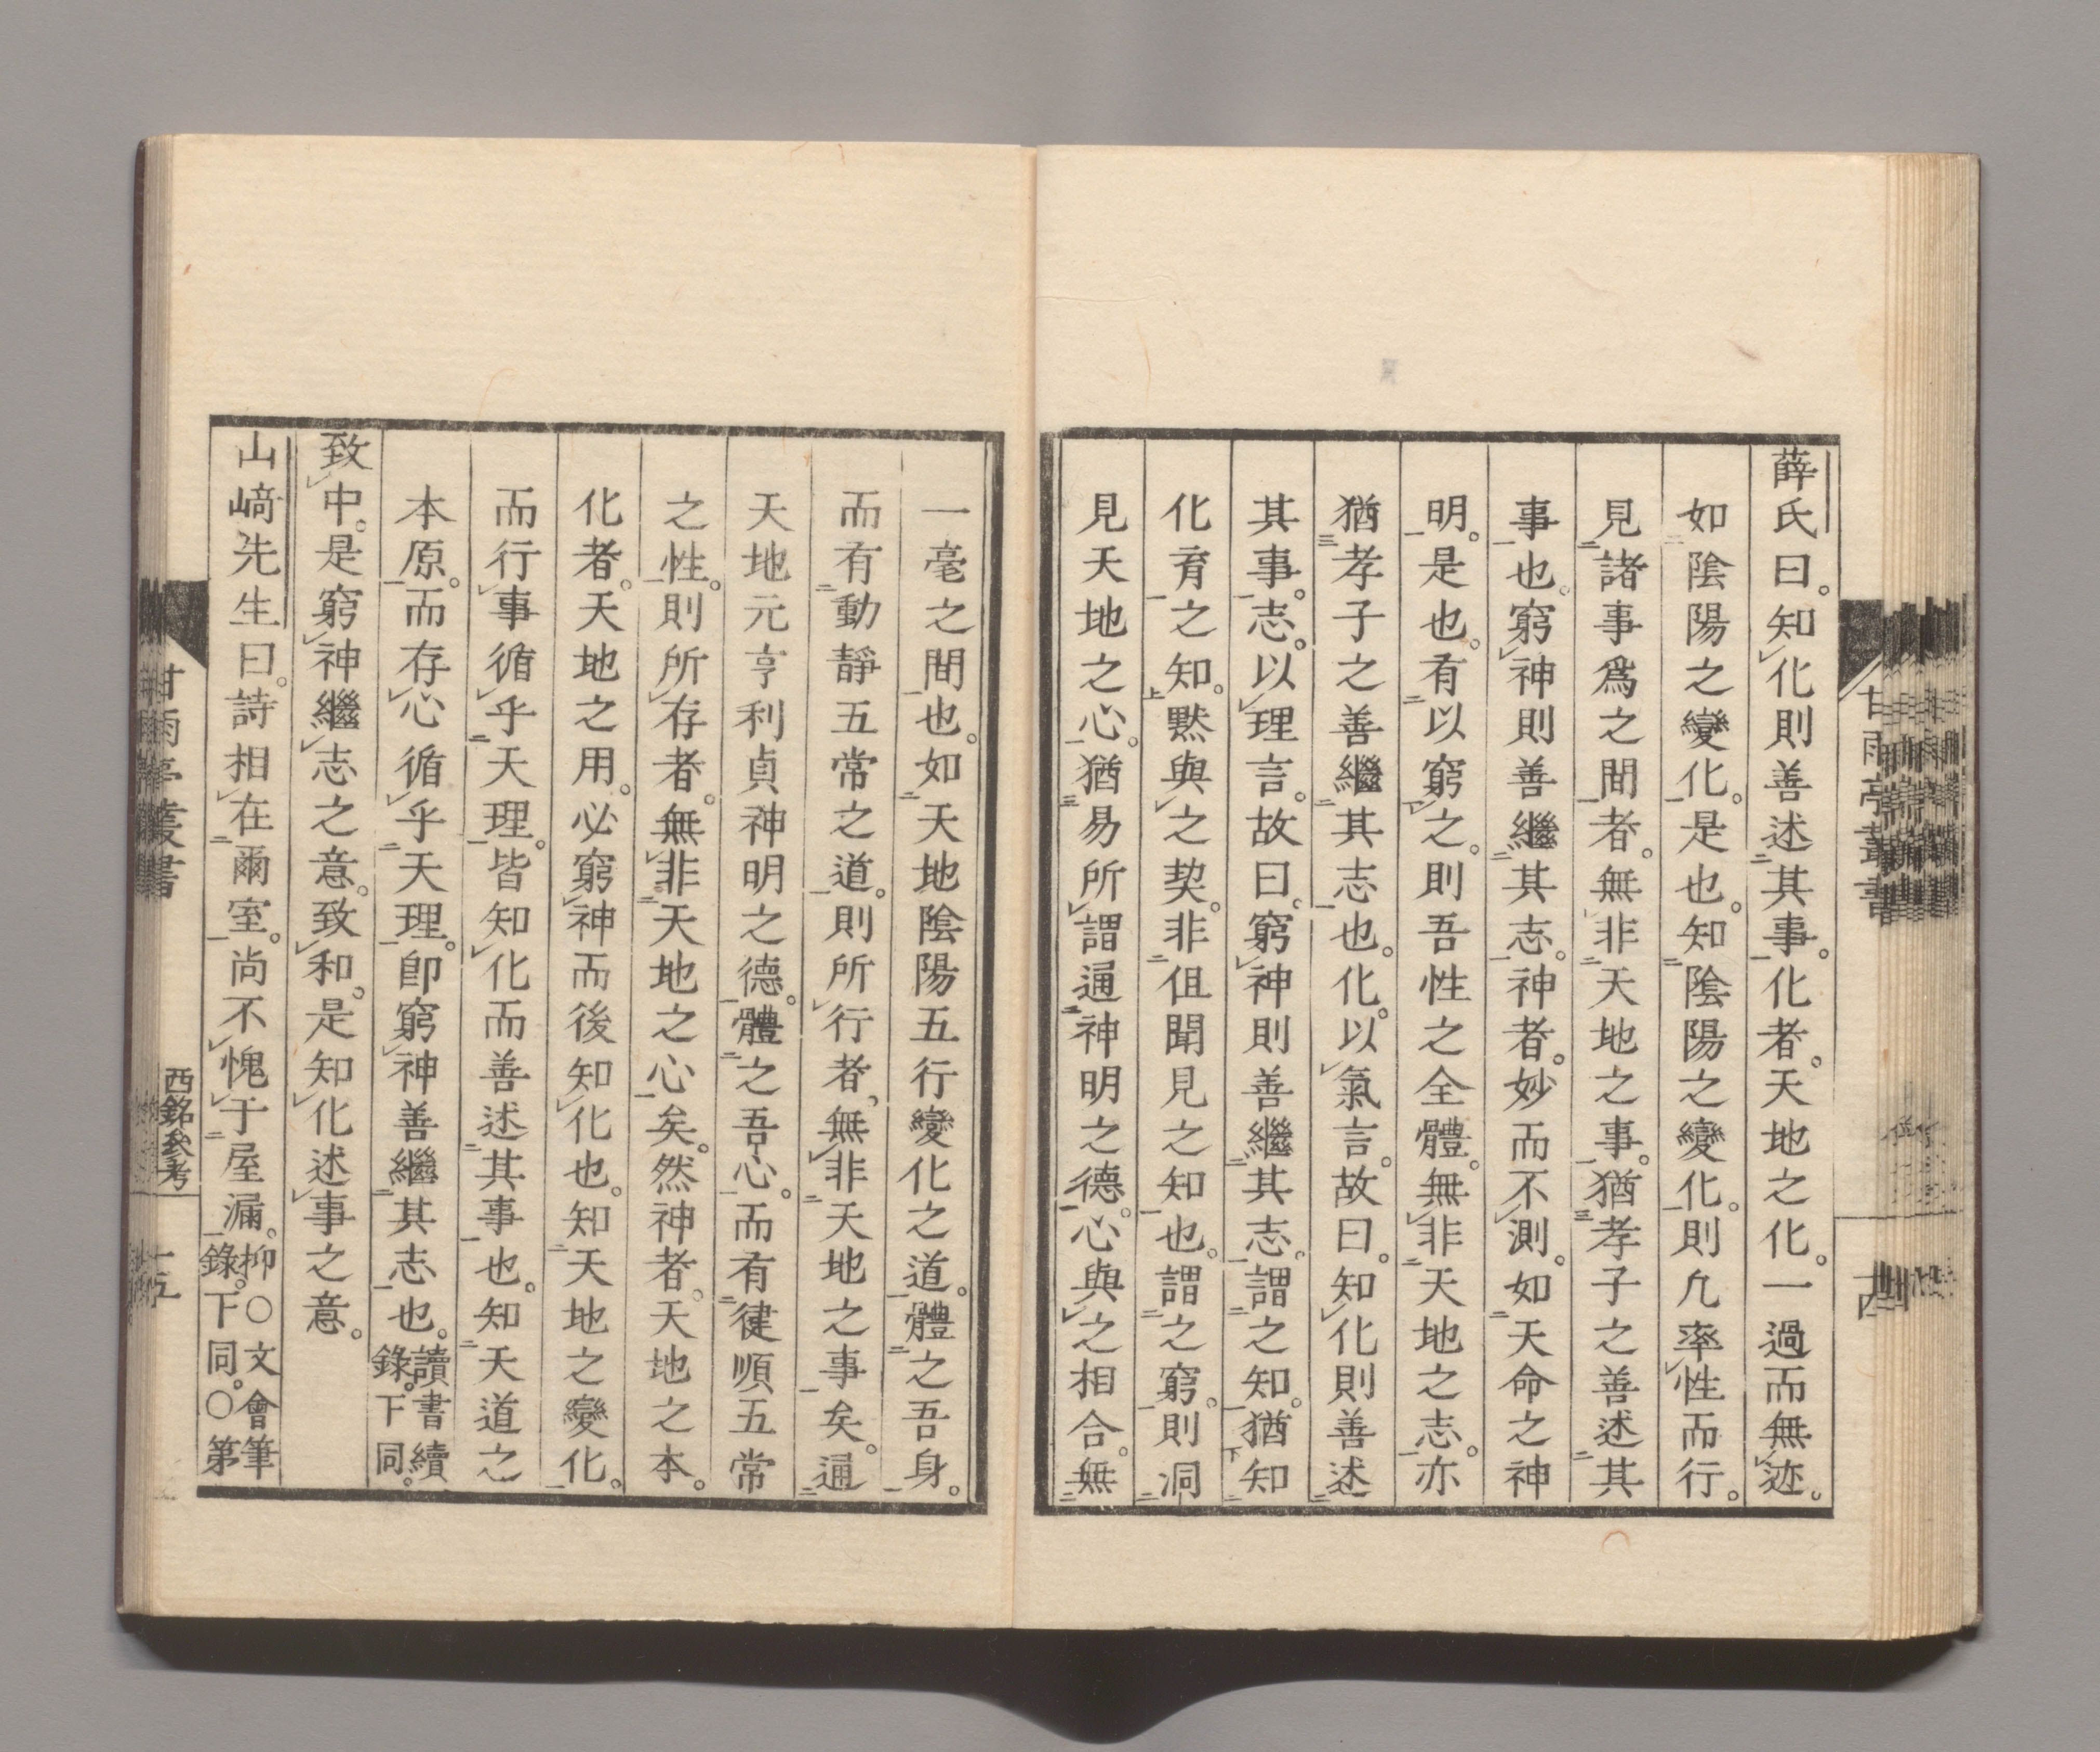 薛氏曰。知化則善述其事。化者。天地之化。一過而無迹。
如陰陽之變化。是也。知陰陽之變化。則凢率性而行。
見諸事爲之間者。無非天地之事。猶孝子之善述其
事也。窮神則善繼其志。神者。妙而不測。如天命之神
明。是也。有以窮之。則吾性之全體。無非天地之志。亦
猶孝子之善繼其志也。化。以氣言。故曰。知化則善述
其事。志。以理言。故曰。窮神則善繼其志。謂之知。猶知
化育之知。默與之契。非伹聞見之知也。謂之窮。則洞
見天地之心。猶易所謂通神明之德。心與之相合。無
一毫之間也。如天地陰陽五行變化之道。體之吾身。
而有動靜五常之道。則所行者。無非天地之事矣。通
天地元亨利貞神明之德。體之吾心。而有健順五常
之性。則所存者。無非天地之心矣。然神者。天地之本。
化者。天地之用。必窮神而後知化也。知天地之變化。
而行事循乎天理。皆知化而善述其事也。知天道之
本原。而存心循乎天理。卽窮神善繼其志也。讀書續
錄。下同。
致中。是窮神繼志之意。致和。是知化述事之意。
山﨑先生曰。詩相在爾室。尚不愧于屋漏。抑○文會筆
錄。下同。○第
甘雨亭叢書
西銘參考
十五
甘雨亭叢書
十四